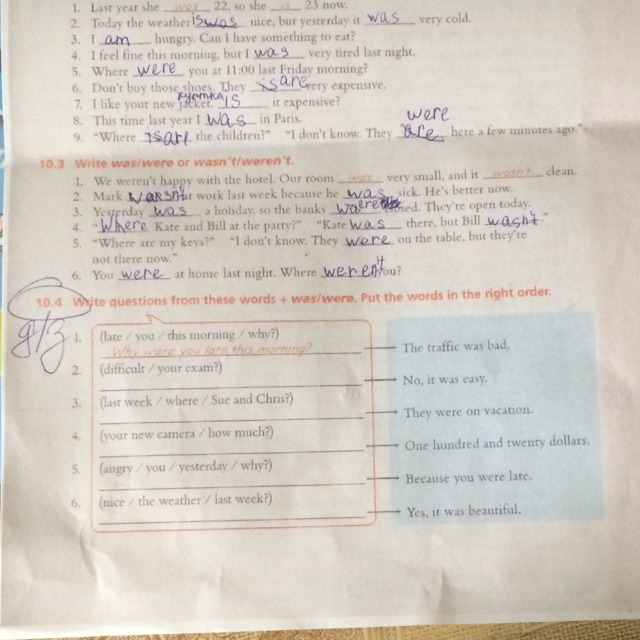 1. Last year she was 22, so she is 23 now.
2. Today the weather is was nice, but yesterday it was very cold.
3. I am hungry. Can I have something to eat?
4. I feel fine this morning, but I was very tired last night.
5. Where were you at 11:00 last Friday morning?
6. Don't buy those shoes. They is are very expensive.
7. I like your new jacket. is it expensive?
8. This time last year I was in Paris.
were
9. "Where is are the children?" "I don't know. They are here a few minutes ago."
10.3 Write was/were or wasn't/weren't.
1. We weren't happy with the hotel. Our room was very small, and it wasn't clean.
2. Mark wasn't at work last week because he was sick. He's better now.
3. Yesterday was a holiday, so the banks were closed. They're open today.
4. "Where Kate and Bill at the party?" "Kate was there, but Bill wasn't."
5. "Where are my keys?" "I don't know. They were on the table, but they're
not there now."
6. You were at home last night. Where weren't you?
10.4 Write questions from these words + was/were. Put the words in the right order.
g/z
1. (late / you / this morning / why?)
Why were you late this morning? The traffic was bad.
2. (difficult / your exam?)
No, it was easy.
3. (last week / where / Sue and Chris?)
They were on vacation.
4. (your new camera / how much?)
One hundred and twenty dollars.
5. (angry / you / yesterday / why?)
Because you were late.
6. (nice / the weather / last week?)
Yes, it was beautiful.